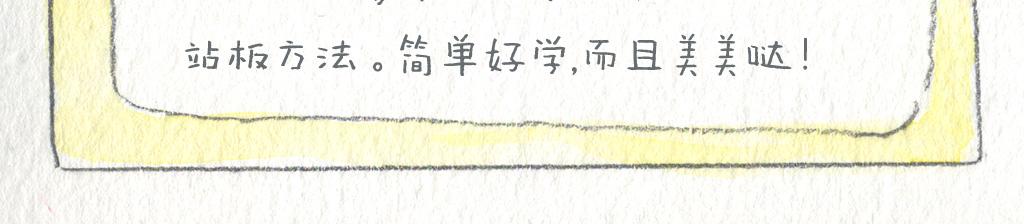 站板方法。简单好学,而且美美哒!